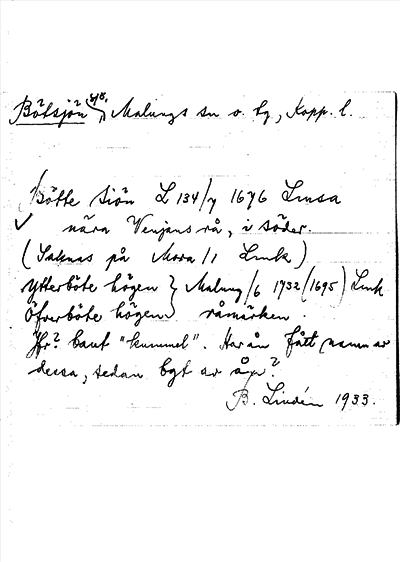 Bötsjön sjö, Malungs sn o. tg, Kopp. l.
Bötte Siön L 134/7 1676 Lmsa
✓ nära Venjans rå, i söder.
(Saknas på Mora 1/1 Lmk)
Ytterböte högen } Malung 1/6 1732 (1695) Lmk
Öfverböte högen } råmärken.
Jfr? baut "kummel". Har ån fått namn av
dessa, sedan bgt av åjn?
B. Lindén 1933.